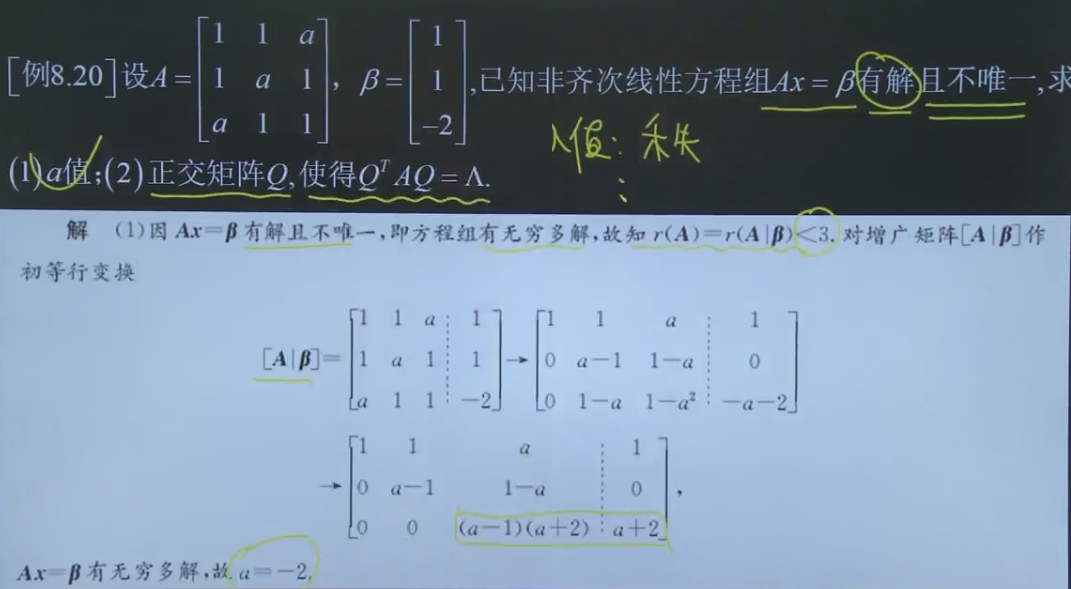 [例8.20]设A=[1 1 a; 1 a 1; a 1 1], β=[1; 1; -2],已知非齐次线性方程组Ax=β有解且不唯一,求
(1)a值;(2)正交矩阵Q,使得QᵀAQ=Λ.
λ值:
解 (1)因Ax=β有解且不唯一,即方程组有无穷多解,故知r(A)=r(A|β)<3.对增广矩阵[A|β]作
初等行变换
[A|β]=[1 1 a ⋮ 1; 1 a 1 ⋮ 1; a 1 1 ⋮ -2]→[1 1 a ⋮ 1; 0 a-1 1-a ⋮ 0; 0 1-a 1-a² ⋮ -a-2]
→[1 1 a ⋮ 1; 0 a-1 1-a ⋮ 0; 0 0 (a-1)(a+2) ⋮ a+2],
Ax=β有无穷多解,故a=-2.